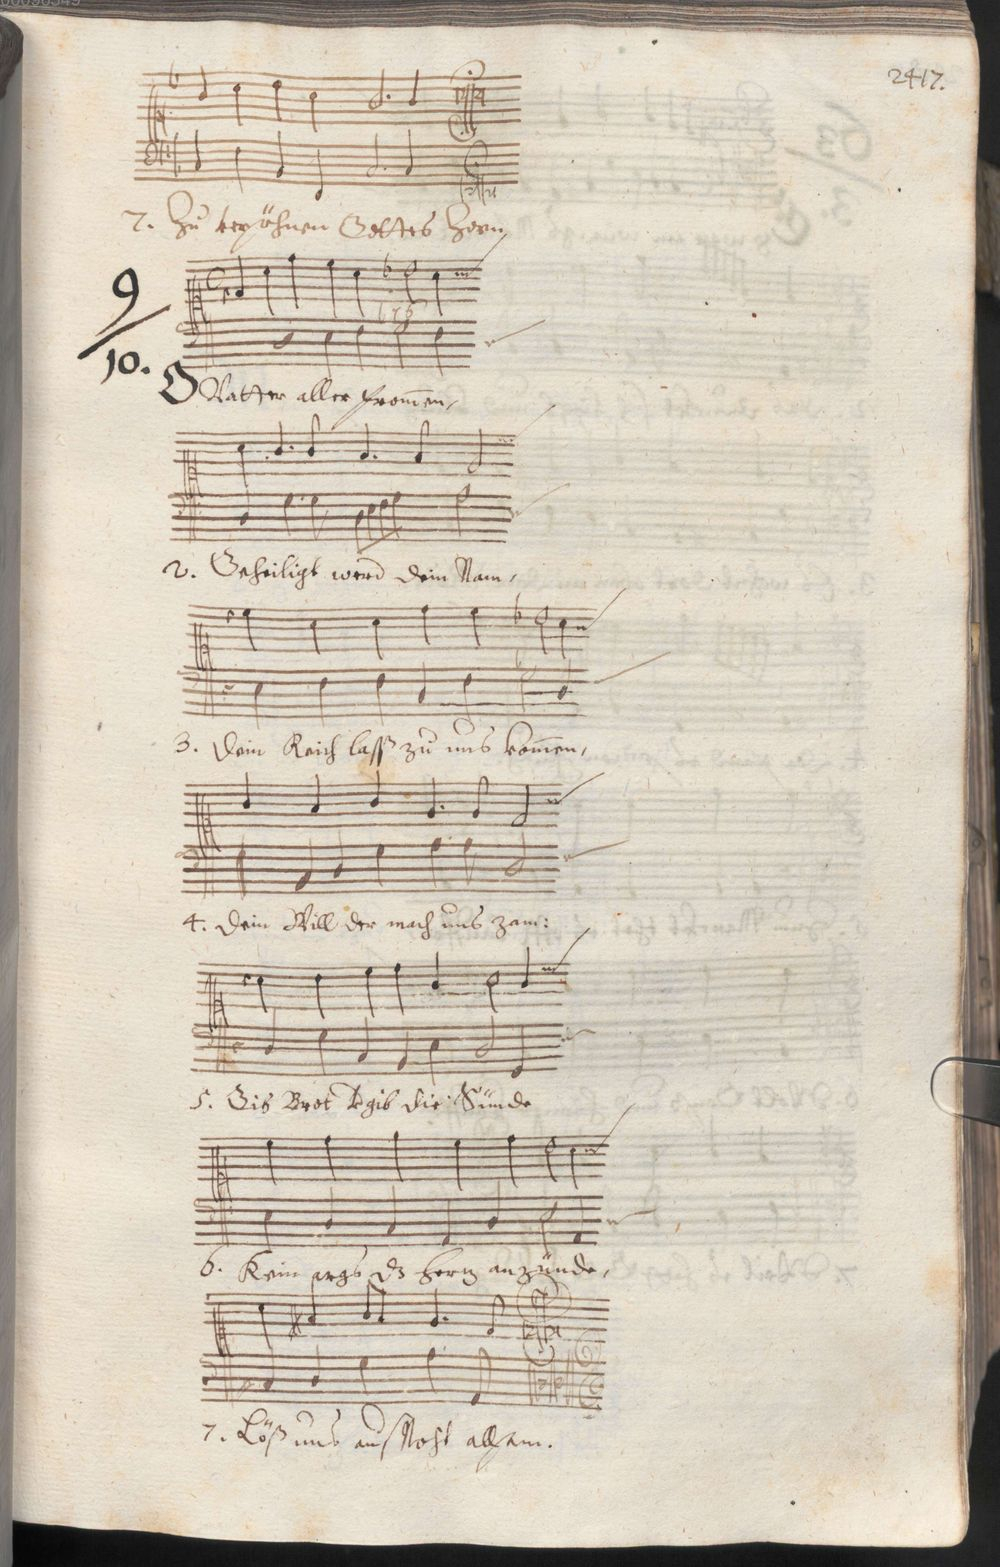 2417.
7. Zu versöhnen Gottes Zorn
9/10.
O Vatter aller from̄en,
2. Geheiligt werd dein Nam,
3. Dein Reich lass zu uns kom̄en,
4. Dein Will der mach uns zam:
5. Gib Brot vergib die Sünde
6. Kein args dz Hertz anzünde,
7. Löß uns aus Noht allsam.